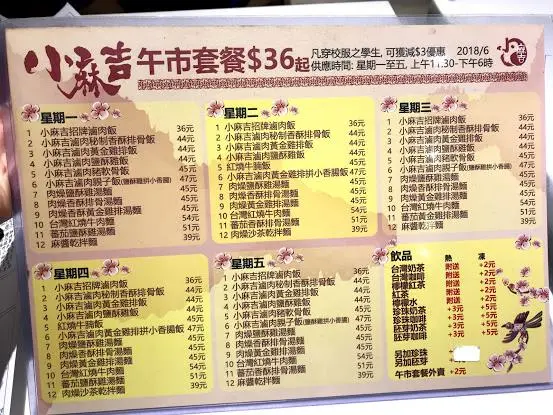 小麻吉 午市套餐$36起
凡穿校服之學生, 可獲減$3優惠 2018/6
供應時間: 星期一至五, 上午11:30-下午6時
麻吉
星期一
1 小麻吉招牌滷肉飯 36元
2 小麻吉滷肉秘制香酥排骨飯 44元
3 小麻吉滷肉黃金雞排飯 44元
4 小麻吉滷肉鹽酥雞飯 44元
5 小麻吉滷肉豬軟骨飯 45元
6 小麻吉滷肉親子飯(鹽酥雞拼小香腸) 47元
7 肉燥鹽酥雞湯麵 45元
8 肉燥香酥排骨湯麵 45元
9 肉燥香酥黃金雞排湯麵 45元
10 台灣紅燒牛肉麵 54元
11 蕃茄鹽酥雞湯麵 51元
12 麻醬乾拌麵 39元
星期二
1 小麻吉招牌滷肉飯 36元
2 小麻吉滷肉秘制香酥排骨飯 44元
3 小麻吉滷肉黃金雞排飯 44元
4 小麻吉滷肉鹽酥雞飯 44元
5 紅燒牛腩飯 45元
6 小麻吉滷肉黃金雞排拼小香腸飯 47元
7 肉燥鹽酥雞湯麵 45元
8 肉燥香酥排骨湯麵 45元
9 肉燥黃金雞排湯麵 45元
10 台灣紅燒牛肉麵 54元
11 蕃茄香酥排骨湯麵 51元
12 肉燥沙茶乾拌麵 39元
星期三
1 小麻吉招牌滷肉飯 36元
2 小麻吉滷肉秘制香酥排骨飯 44元
3 小麻吉滷肉黃金雞排飯 44元
4 小麻吉滷肉鹽酥雞飯 44元
5 小麻吉滷肉豬軟骨飯 45元
6 小麻吉滷肉親子飯(鹽酥雞拼小香腸) 47元
7 肉燥鹽酥雞湯麵 45元
8 肉燥香酥排骨湯麵 45元
9 肉燥黃金雞排湯麵 45元
10 台灣紅燒牛肉麵 54元
11 蕃茄黃金雞排湯麵 51元
12 麻醬乾拌麵 39元
星期四
1 小麻吉招牌滷肉飯 36元
2 小麻吉滷肉秘制香酥排骨飯 44元
3 小麻吉滷肉黃金雞排飯 44元
4 小麻吉滷肉鹽酥雞飯 44元
5 紅燒牛腩飯 45元
6 小麻吉滷肉黃金雞排拼小香腸飯 47元
7 肉燥鹽酥雞湯麵 45元
8 肉燥香酥排骨湯麵 45元
9 肉燥黃金雞排湯麵 45元
10 台灣紅燒牛肉麵 54元
11 蕃茄香酥排骨湯麵 51元
12 肉燥沙茶乾拌麵 39元
星期五
1 小麻吉招牌滷肉飯 36元
2 小麻吉滷肉秘制香酥排骨飯 44元
3 小麻吉滷肉黃金雞排飯 44元
4 小麻吉滷肉鹽酥雞飯 44元
5 小麻吉滷肉豬軟骨飯 45元
6 小麻吉滷肉親子飯(鹽酥雞拼小香腸) 47元
7 肉燥鹽酥雞湯麵 45元
8 肉燥香酥排骨湯麵 45元
9 肉燥黃金雞排湯麵 45元
10 台灣紅燒牛肉麵 54元
11 蕃茄鹽酥雞湯麵 51元
12 麻醬乾拌麵 39元
飲品 熱 凍
台灣奶茶 附送 +2元
台灣咖啡 附送 +2元
檸檬紅茶 附送 +2元
紅茶 附送 +2元
檸檬水 附送 +2元
珍珠奶茶 +3元 +5元
珍珠咖啡 +3元 +5元
胚芽奶茶 +3元 +5元
胚芽咖啡 +3元 +5元
另加珍珠
另加胚芽
午市套餐外賣 +2元